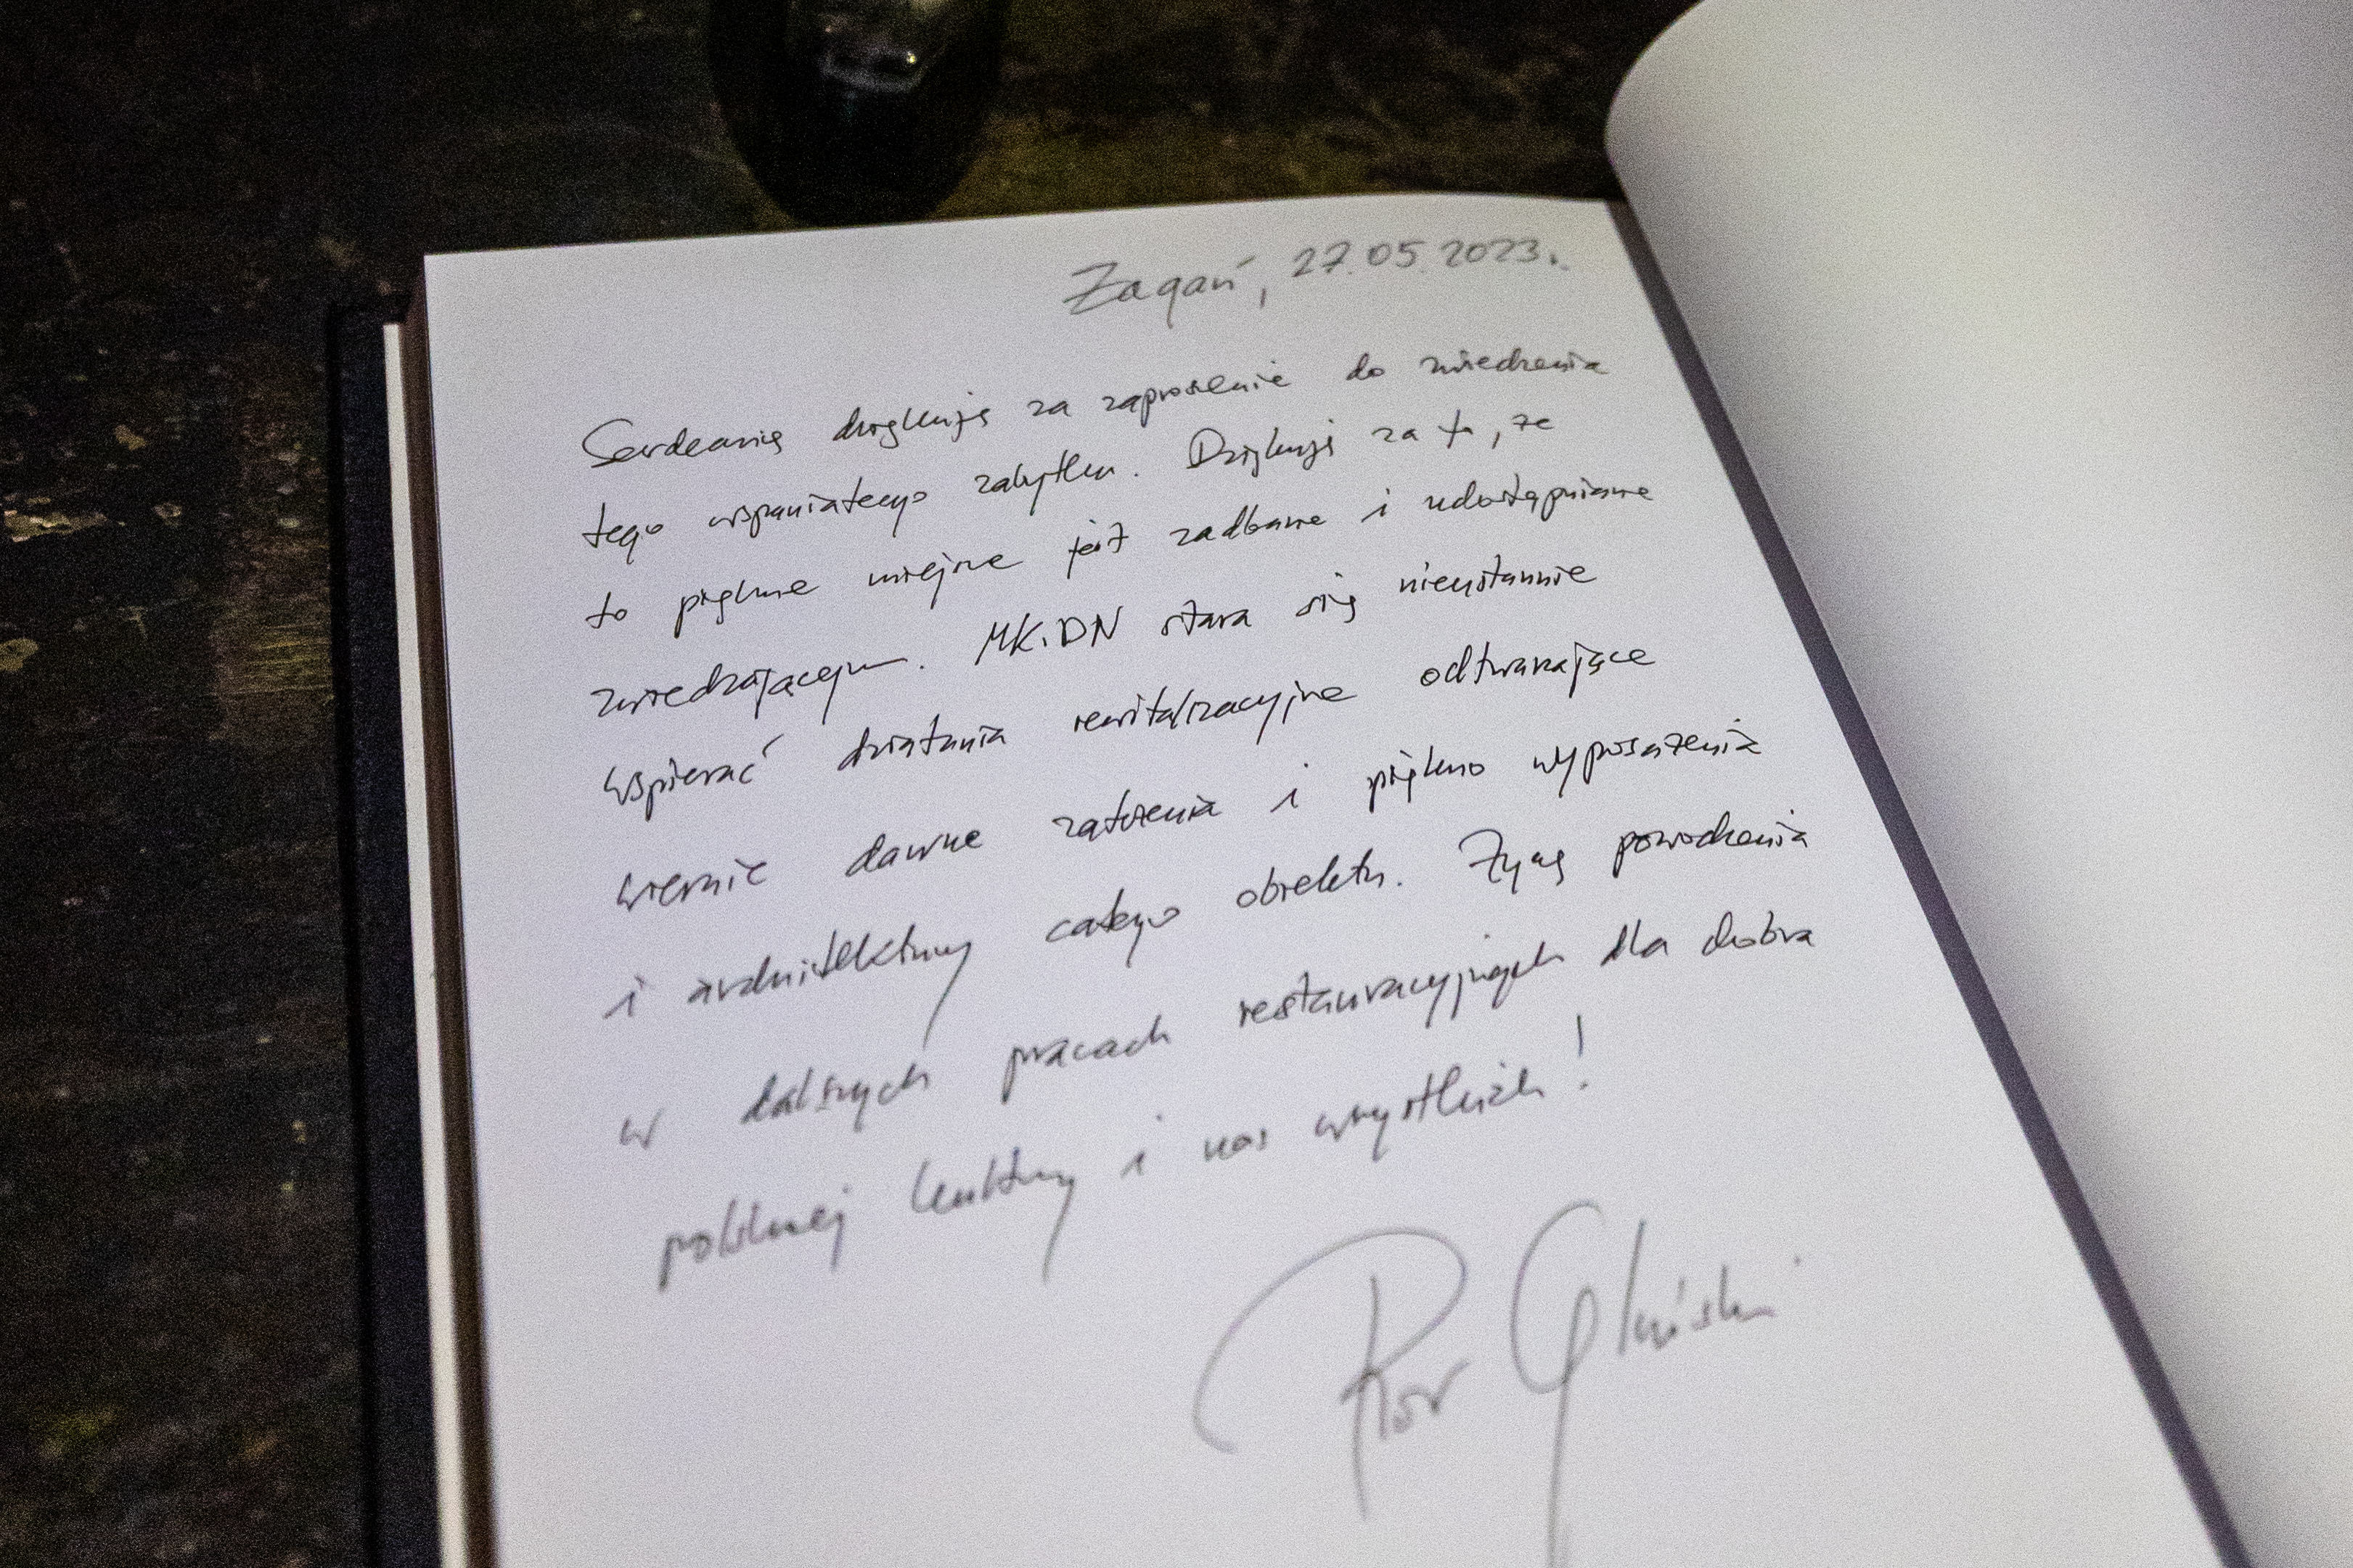 Żagań, 27.05.2023r.
Serdecznie dziękuję za zaproszenie do zwiedzenia
tego wspaniałego zabytku. Dziękuję za to, że
to piękne miejsce jest zadbane i udostępniane
zwiedzającym. MKiDN stara się nieustannie
wspierać działania rewitalizacyjne odtwarzające
wiernie dawne założenia i piękno wyposażenia
i architektury całego obiektu. Życzę powodzenia
w dalszych pracach restauracyjnych dla dobra
polskiej kultury i nas wszystkich!
Piotr Gliński